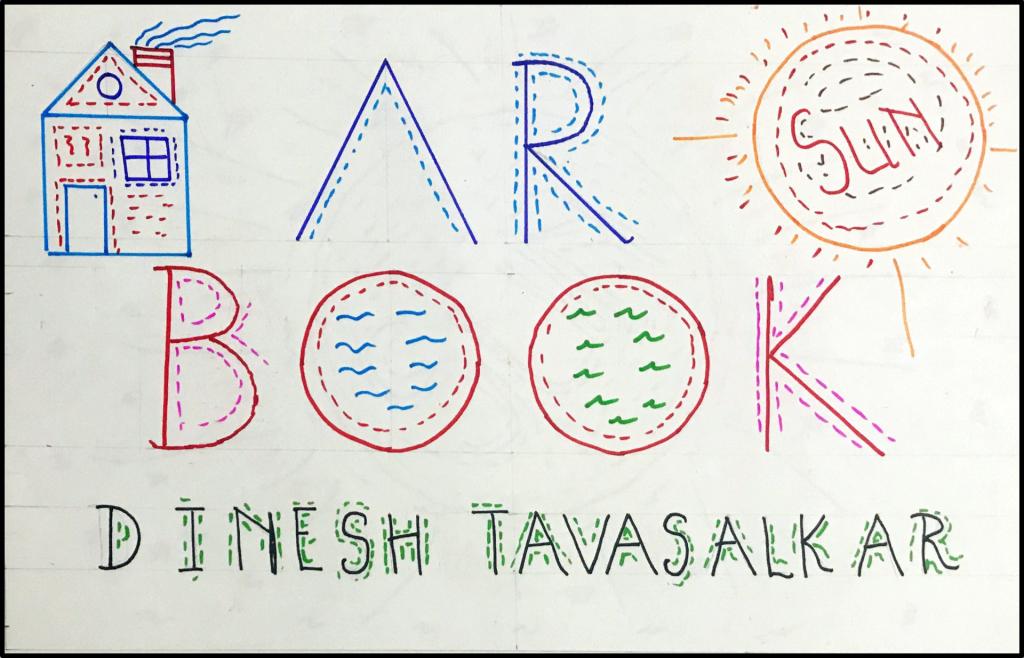 AR
SUN
BOOK
DINESH TAVASALKAR